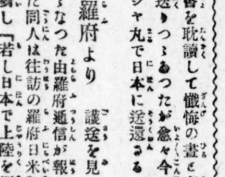 書を耽讀して懺悔の晝と
送りつゝあつたが愈々今
シヤ丸で日本に送還さる
羅府より 護送を見
るなつた由羅府通信が報
た同人は往訪の羅府日米
し『若し日本で上陸を